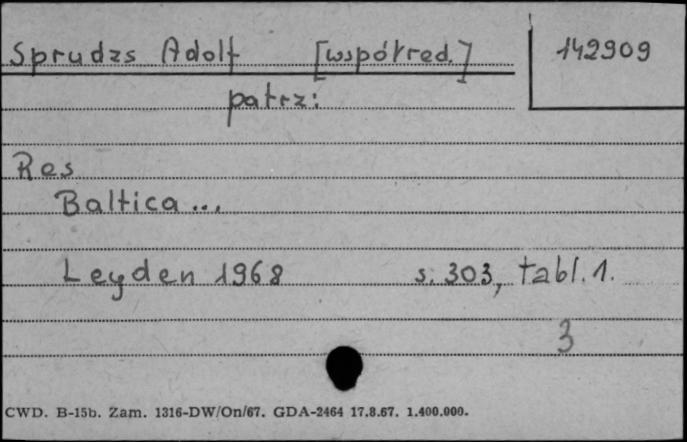 Sprudzs Adolf [współred.] 142909
patrz:
Res
Baltica...
Leyden 1968 s. 303, tabl. 1.
3
CWD. B-15b. Zam. 1316-DW/On/67. GDA-2464 17.8.67. 1.400.000.